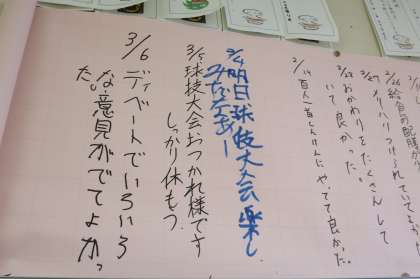 2/26 給食の配膳が
2/27 メリハリつけられていて
2/28 おかわりをたくさんして
いて良かった。
百人一首しんけんにやってて良かった。
3/4 明日球技大会楽し
3/5 球技大会おつかれ様です
しっかり休もう
3/6 ディベートでいろいろ
な意見がでてよかっ
た。